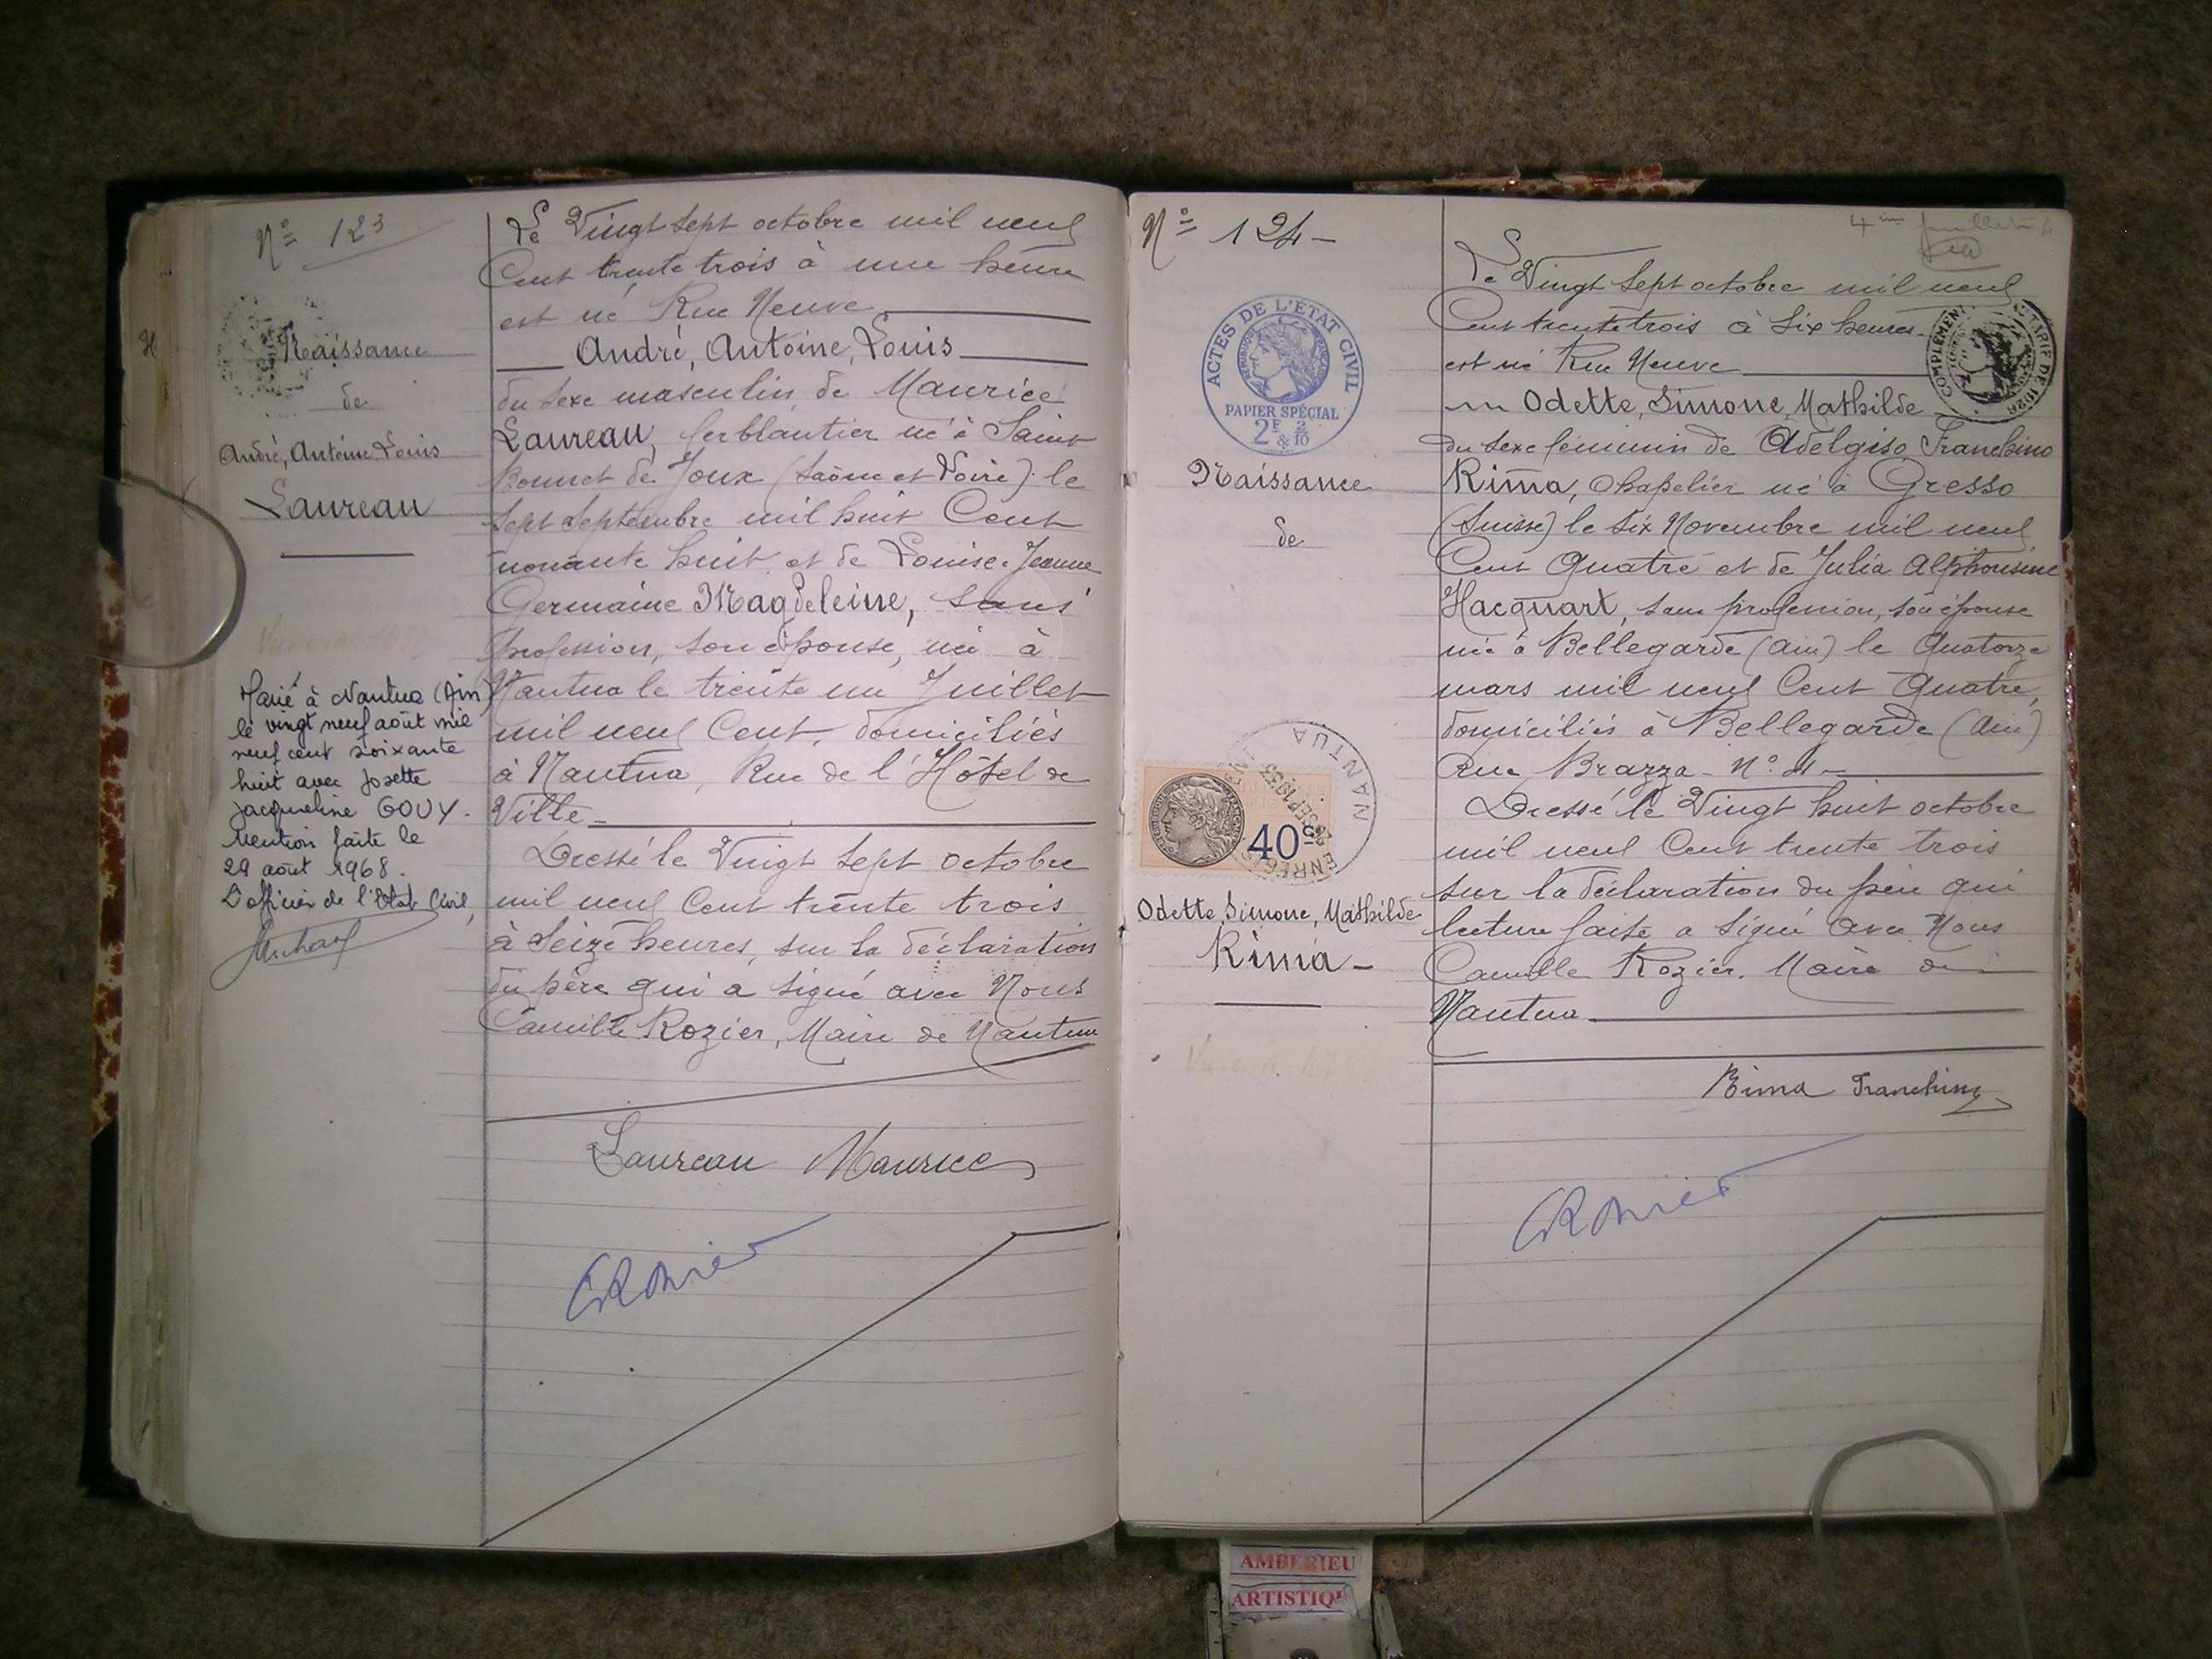 Nº 123
Naissance
de
André, Antoine, Louis
Laureau
Marié à Nantua (Ain)
le vingt neuf août mil
neuf cent soixante
huit avec Josette
Jacqueline GOUY.
Mention faite le
29 août 1968.
L'officier de l'Etat Civil,
Le Vingt sept octobre mil neuf
Cent trente trois à une heure
est né Rue Neuve
André, Antoine, Louis
du sexe masculin de Maurice
Laureau, ferblantier né à Saint
Bonnet de Joux (Saône et Loire) le
sept septembre mil huit Cent
nonante huit et de Louise Jeanne
Germaine Magdeleine, sans
profession, son épouse, née à
Nantua le trente un Juillet
mil neuf Cent, domiciliés
à Nantua, Rue de l'Hôtel de
Ville
Dressé le Vingt sept octobre
mil neuf Cent trente trois
à seize heures, sur la déclaration
du père qui a signé avec Nous
Camille Rozier, Maire de Nantua
Laureau Maurice
CRozier
Nº 124
ACTES DE L'ÉTAT CIVIL
RÉPUBLIQUE FRANÇAISE
PAPIER SPÉCIAL
2F & 2/10
Naissance
de
NANTUA
40
Odette, Simone, Mathilde
Rima
4
COMPLÉMENT TARIF DE 1926
Le Vingt Sept octobre mil neuf
Cent trente trois à Six heures
est né Rue Neuve
Odette, Simone, Mathilde
du sexe féminin de Adelgiso Franchino
Rima, chapelier né à Gresso
(Suisse) le Six Novembre mil neuf
Cent Quatre et de Julia Alphonsine
Hacquart, sans profession, son épouse
née à Bellegarde (Ain) le Quatorze
mars mil neuf Cent Quatre,
domiciliés à Bellegarde (Ain)
Rue Brazza - Nº
Dressé le Vingt huit octobre
mil neuf Cent trente trois
sur la déclaration du père qui
lecture faite a signé avec Nous
Camille Rozier, Maire de
Nantua
Rima Franchino
CRozier
AMBERIEU
ARTISTIQ